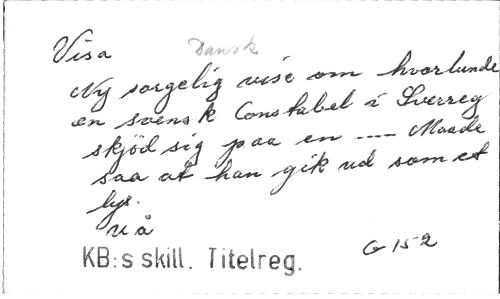 Visa Dansk
Ny sorgelig vise om hvorlunde
en svensk Constabel i Sverreg
skjöd sig paa en ---- Maade
saa at han gik ud som et
lys.
u å
KB:s skill. Titelreg. G 152